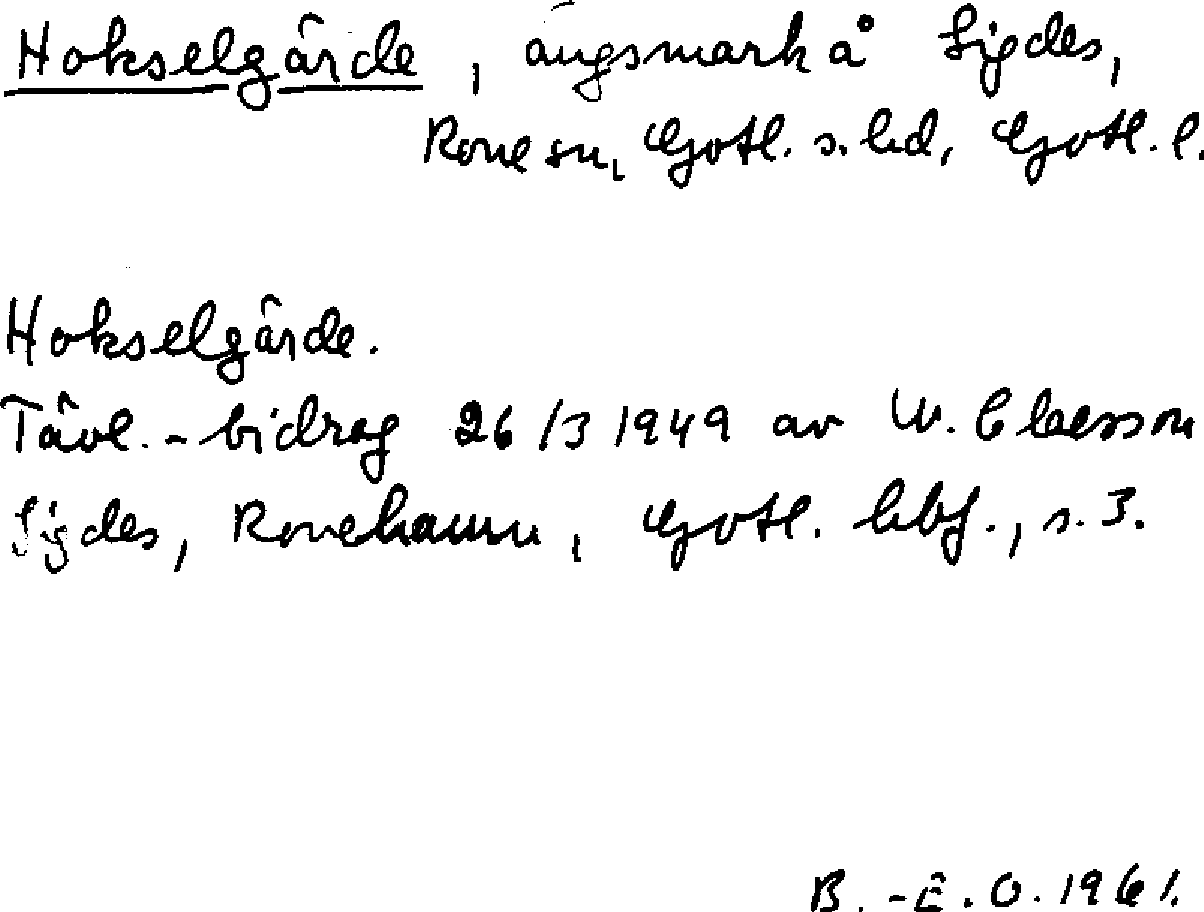 Hokselgärde, ängsmark å Sigdes,
Rone sn, Gotl. s. hd, Gotl. l.
Hokselgärde.
Tävl.-bidrag 26/3 1949 av W. Claesson
Sigdes, Ronehamn, Gotl. hbf., s. 3.
B.-E.O. 1961.